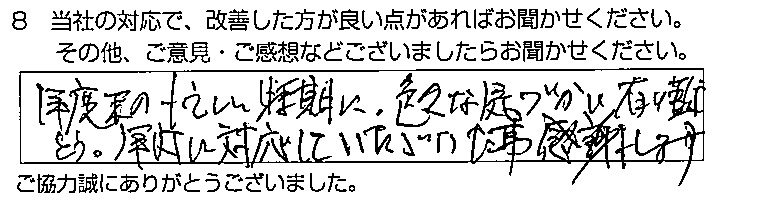 8 当社の対応で、改善した方が良い点があればお聞かせください。
その他、ご意見・ご感想などございましたらお聞かせください。
年度末の忙しい時期に、色々な気づかい有難
とう。 に対応していただいた事感謝します
ご協力誠にありがとうございました。